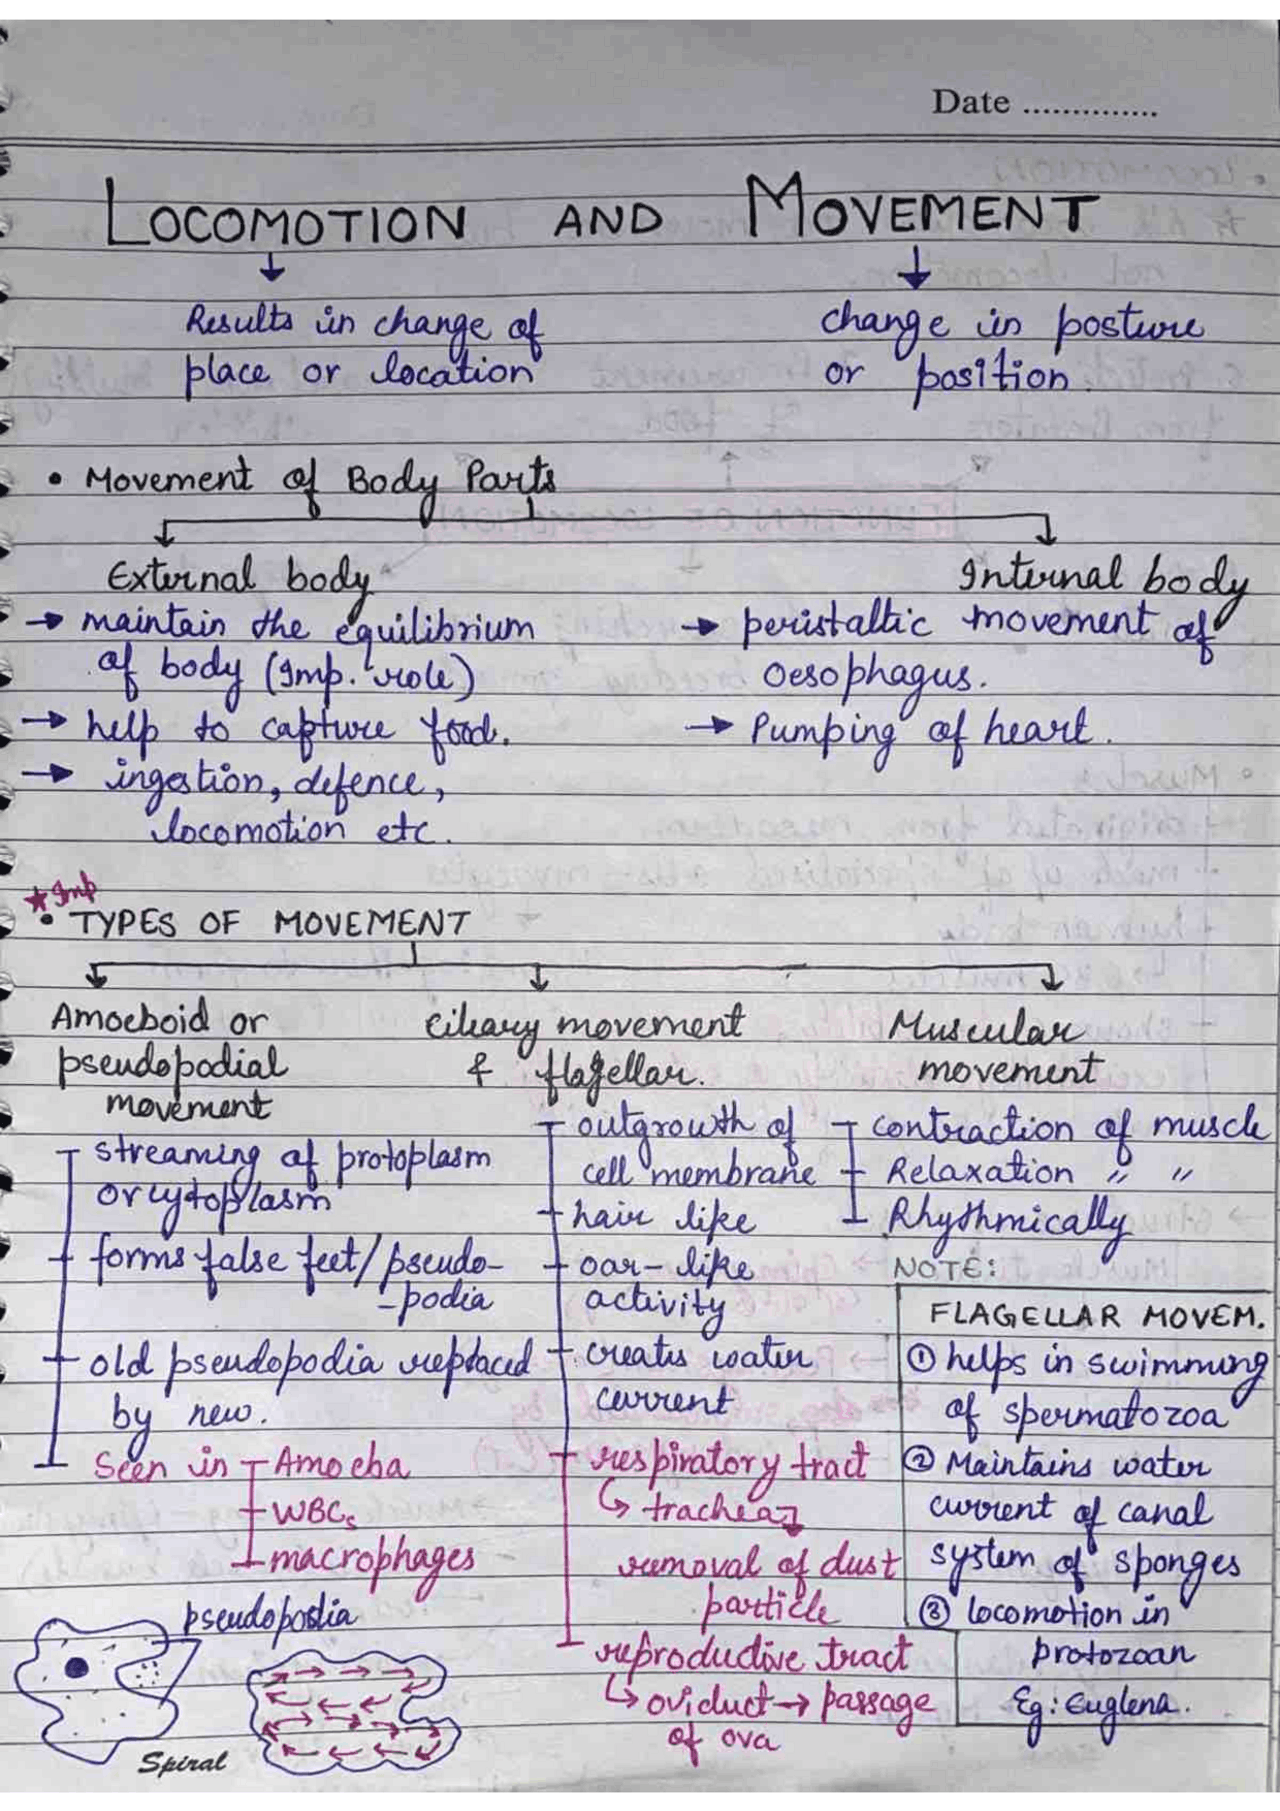 Date ..............
LOCOMOTION AND MOVEMENT
Results in change of
place or location
change in posture
or position.
• Movement of Body Parts
External body
→ maintain the equilibrium
of body (Imp. role)
→ help to capture food.
→ ingestion, defence,
locomotion etc.
Internal body
→ peristaltic movement of
oesophagus.
→ Pumping of heart.
★ Imp
• TYPES OF MOVEMENT
Amoeboid or
pseudopodial
movement
streaming of protoplasm
or cytoplasm
forms false feet/pseudo-
-podia
old pseudopodia replaced
by new.
Seen in Amoeba
WBCs
macrophages
pseudopodia
Spiral
ciliary movement
& flagellar.
outgrowth of
cell membrane
hair like
oar-like
activity
creates water
current
respiratory tract
↳ trachea
removal of dust
particle
reproductive tract
↳ oviduct → passage
of ova
Muscular
movement
contraction of muscle
Relaxation " "
Rhythmically
NOTE:
FLAGELLAR MOVEM.
① helps in swimming
of spermatozoa
② Maintains water
current of canal
system of sponges
③ locomotion in
protozoan
Eg: Euglena.